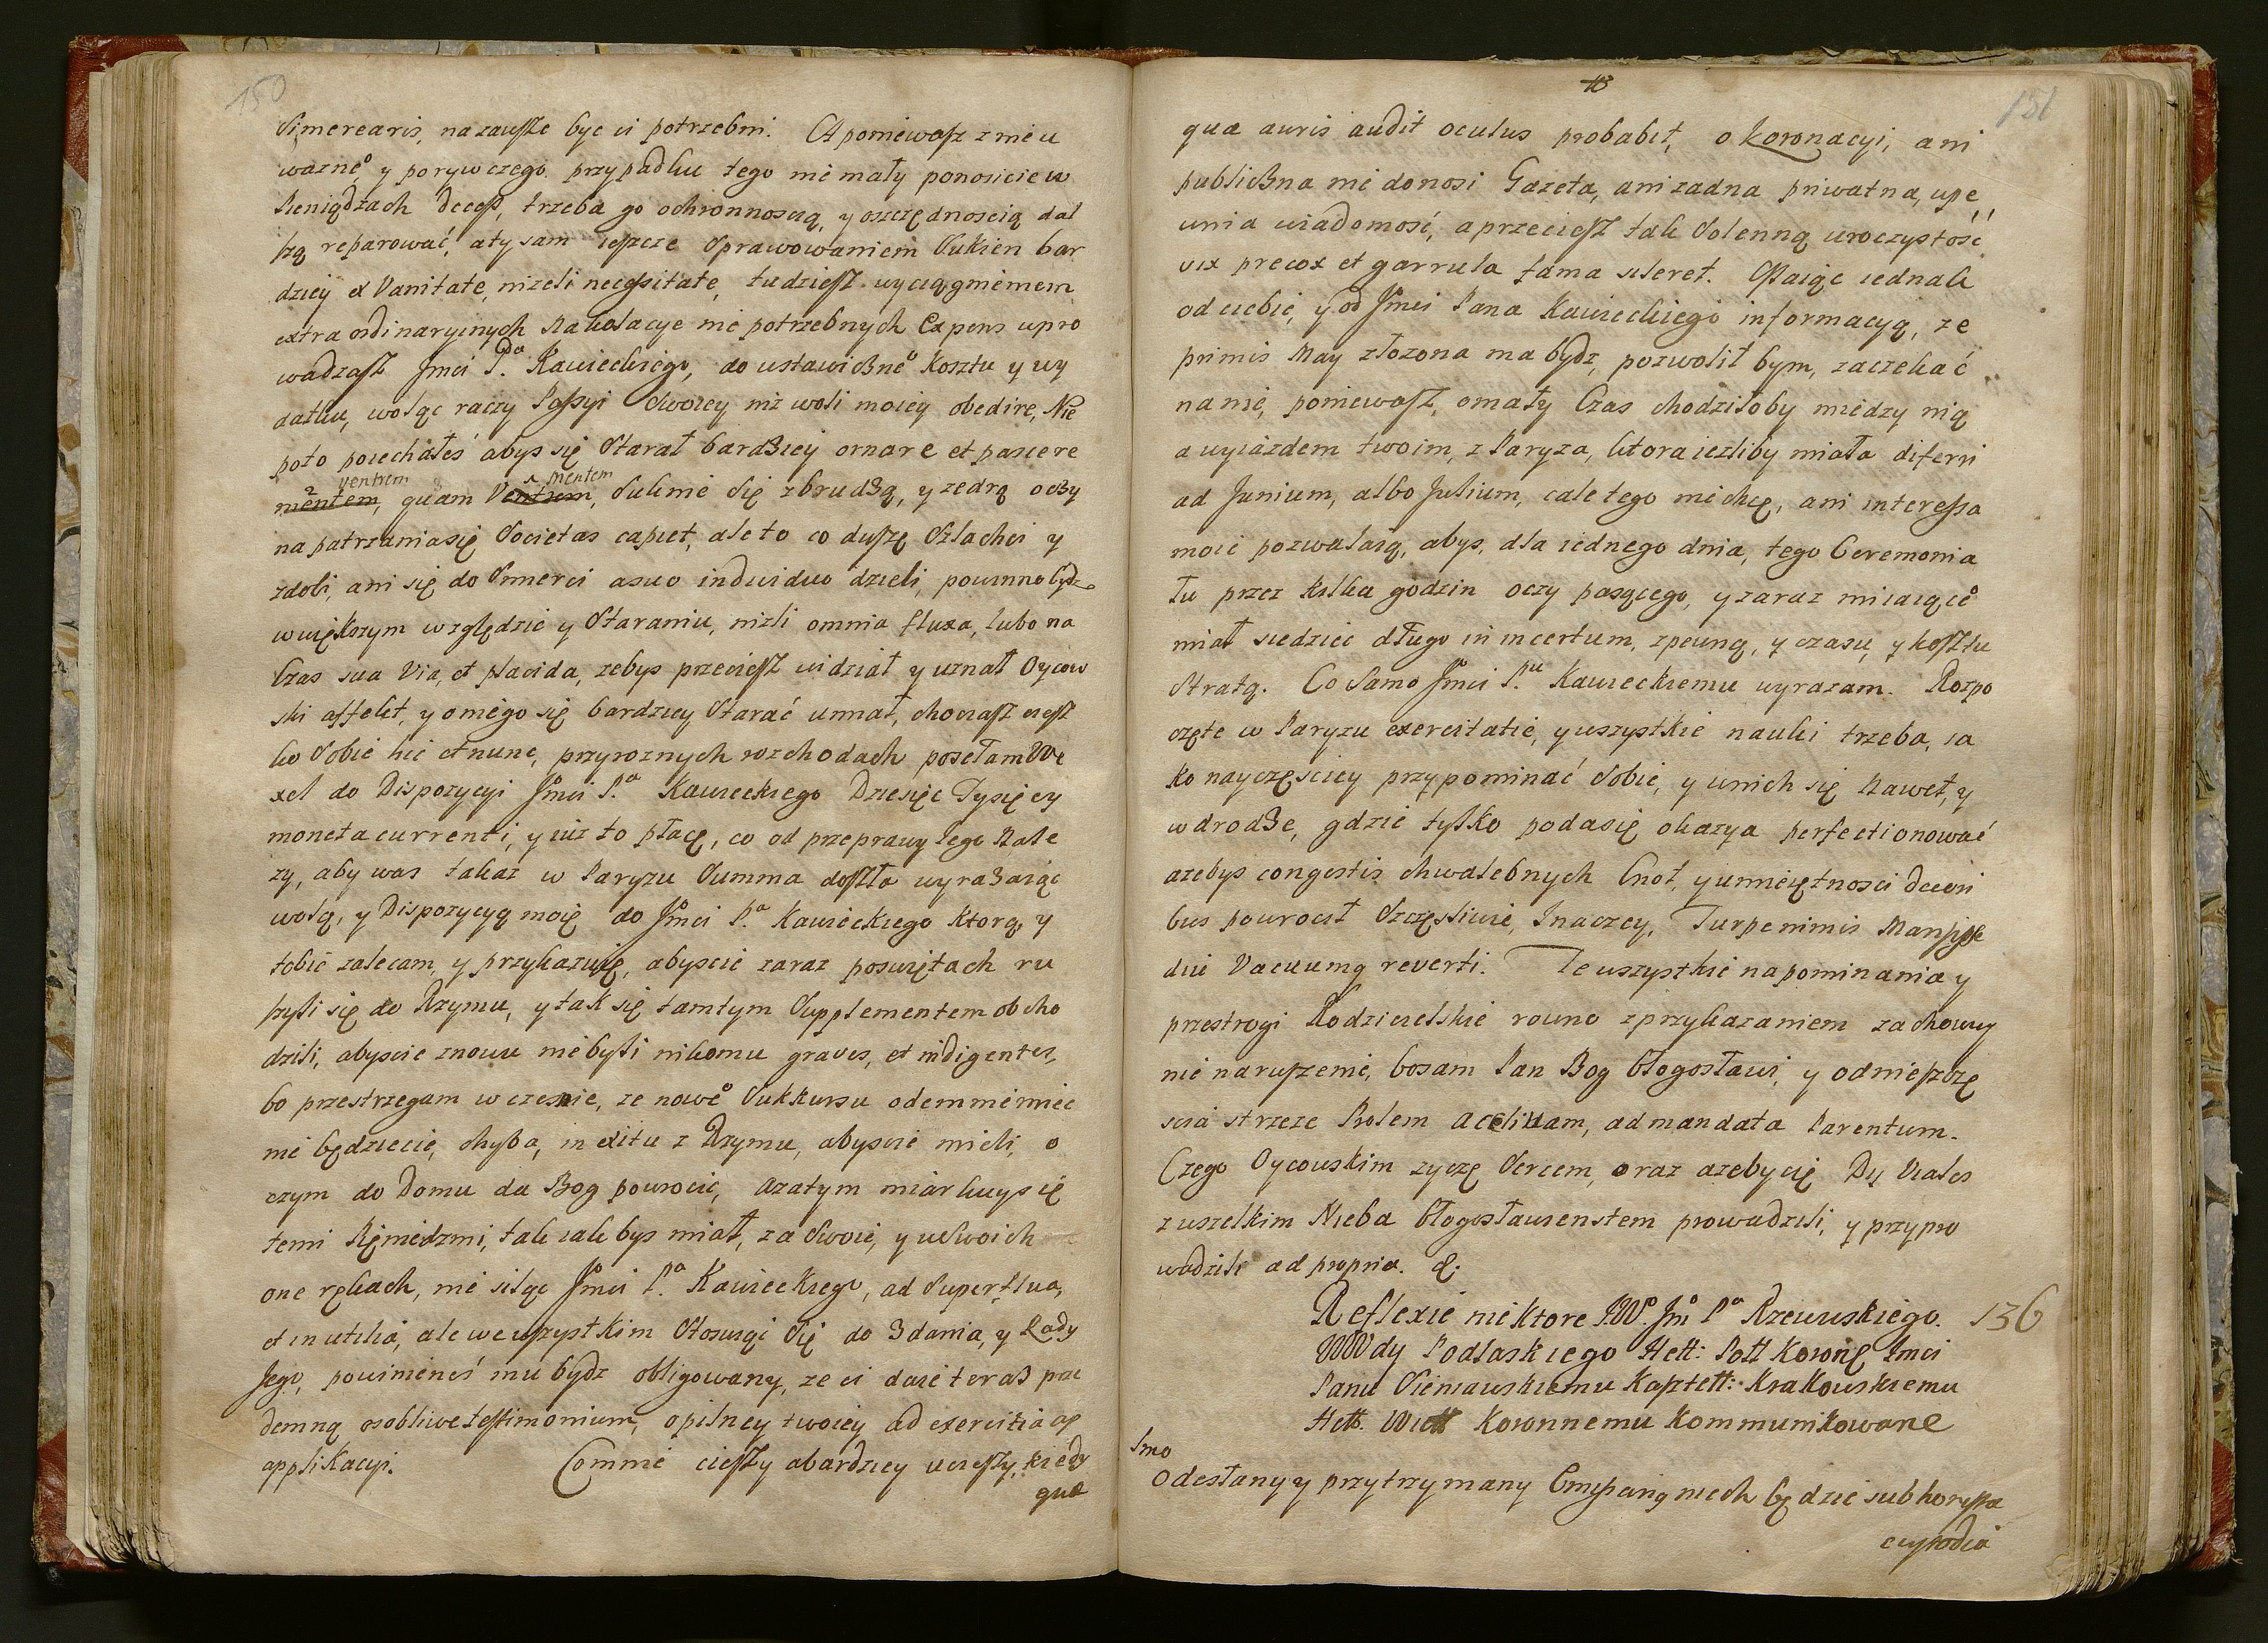 150
Simerearis, nazawsze byc ci potrzebni. A poniewasz z nieu
wazne° y porywczego przypadku tego nie mały ponosicie w
Pieniądzach decess, trzeba go ochronnoscią, y oszczędnoscią dal
szą reparować, aty sam ieszcze Sprawowaniem Sukien bar
dziey ex Vanitate, nizeli necessitate, tudziesz wyciągnieniem
extraordinaryinych na kolacye nie potrzebnych Expens wpro
wadzasz Jmci Pa Kawieckiego, do ustawiczne° Kosztu y wy
datku, woląc raczy Passyi Swoiey niz woli moiey obedire, Nie
poto poiechałeś abys się Starał bardziey ornare et pascere
ventrem mentem
mentem, quam Ventrem, Suknie Się zbrudzą, y zedrą oczy
na patrzaniasię Societas capiet, ale to co duszę Szlachci y
zdobi, ani się do Smierci a suo individuo dzieli, powinno bydz
wwiększym względzie y Staraniu, nizli omnia fluxa, lubo na
Czas sua Via, et placida, zebys przeciesz widział y uznał Oycow
ski affekt, y o niego się bardziey Starać umiał, chociasz ciesz
ko Sobie hic et nunc, przy roznych rozchodach posełam We
xel do Dispozycyi Jmci Pa Kawieckiego Dziesięc Tysięcy
moneta currenti, y iuz to płacę, co od przeprawy lego Nale
zy, aby was takaz w Paryzu Summa doszła wyrazaiąc
wolą, y Dispozycyą moię do Jmci Pa Kawieckiego ktorą y
tobie zalecam, y przykazuię, abyscie zaraz poswiętach ru
szyli się do Rzymu, y tak się tamtym Supplementem obcho
dzili, abyscie znowu niebyli nikomu graves, et indigentes,
bo przestrzegam wczesnie, ze nowe° Sukkursu odemnie miec
nie będziecie, chyba, in exitu z Rzymu, abyscie mieli, o
czym do Domu da Bog powrocić, azatym miarkuysię
temi Pięniędzmi, tak iak bys miał, za Swoie, y wSwoich
one rękach, nie siląc Jmci Pa Kawieckiego, ad Superflua,
et inutilia, ale we wszystkim Stosuiąc Się do Zdania, y Rady
Jego, powinieneś mu bydz obligowany, ze ci daie teraz prze
demną osobliwe testimonium, o pilney twoiey ad exercitia ap
applikacyi. Co mnie cieszy abardziey ucieszy, kiedy
quæ
151
quæ auris audit oculus probabit, o koronacyi, ani
publiczna nie donosi Gazeta, ani zadna priwatna, upe
wnia wiadomość, aprzeciesz tak Solenną uroczystość
vix precox et garrula fama sileret. Maiąc iednak
od ciebie, y od Jmci Pana Kawieckiego informacyą, ze
primis May złozona ma bydz, pozwolił bym, zaczekać
na nię, poniewasz, omały Czas chodziłoby miedzy nią
a wyiazdem twoim, z Paryza, ktora iezliby miała diferri
ad Junium, albo Julium, cale tego nie chcę, ani interessa
moie pozwalaią, abys, dla iednego dnia, tego Ceremonia
łu przez kilka godzin oczy pasącego, y zaraz miiaiące°
miał siedziec długo in incertum, z pewną, y czasu, y kosztu
Stratą. Co Samo Jmci Pu Kawieckiemu wyrazam. Rozpo
częte w Paryzu exercitatie, y wszystkie nauki trzeba, ia
ko nayczęsciey przypominać Sobie, y wnich się Nawet, y
w drodze, gdzie tylko podasię okazya perfectionować
azebys congestis chwalebnych Cnot, y umieiętnosci decori
bus powrocił Szczęsliwie, Inaczey, Turpe nimis Mansisse
diu Vacuumq reverti. Te wszystkie napominania y
przestrogi Rodzicielskie rowno z przykazaniem zachoway
nie naruszenie, bo sam Pan Bog błogosławi, y od nieszczę
scia strzeze Prolem acclivam, ad mandata Parentum.
Czego Oycowskim zyczę Sercem, oraz azebycię Dij Viales
z wszelkim Nieba błogosławienstem prowadzili, y przypro
wadzili ad propria. &.
Reflexie niektore JWo. Jm Pa Rzewuskiego. 136
WWdy Podlaskiego Hett: Poll Koronę Jmci
Panu Sieniawskiemu Kasztell: Krakowskiemu
Hett. Wiell Koronnemu Kommunikowane
1mo
Odesłany y przytrzymany niech będzie sub honesta
custodia